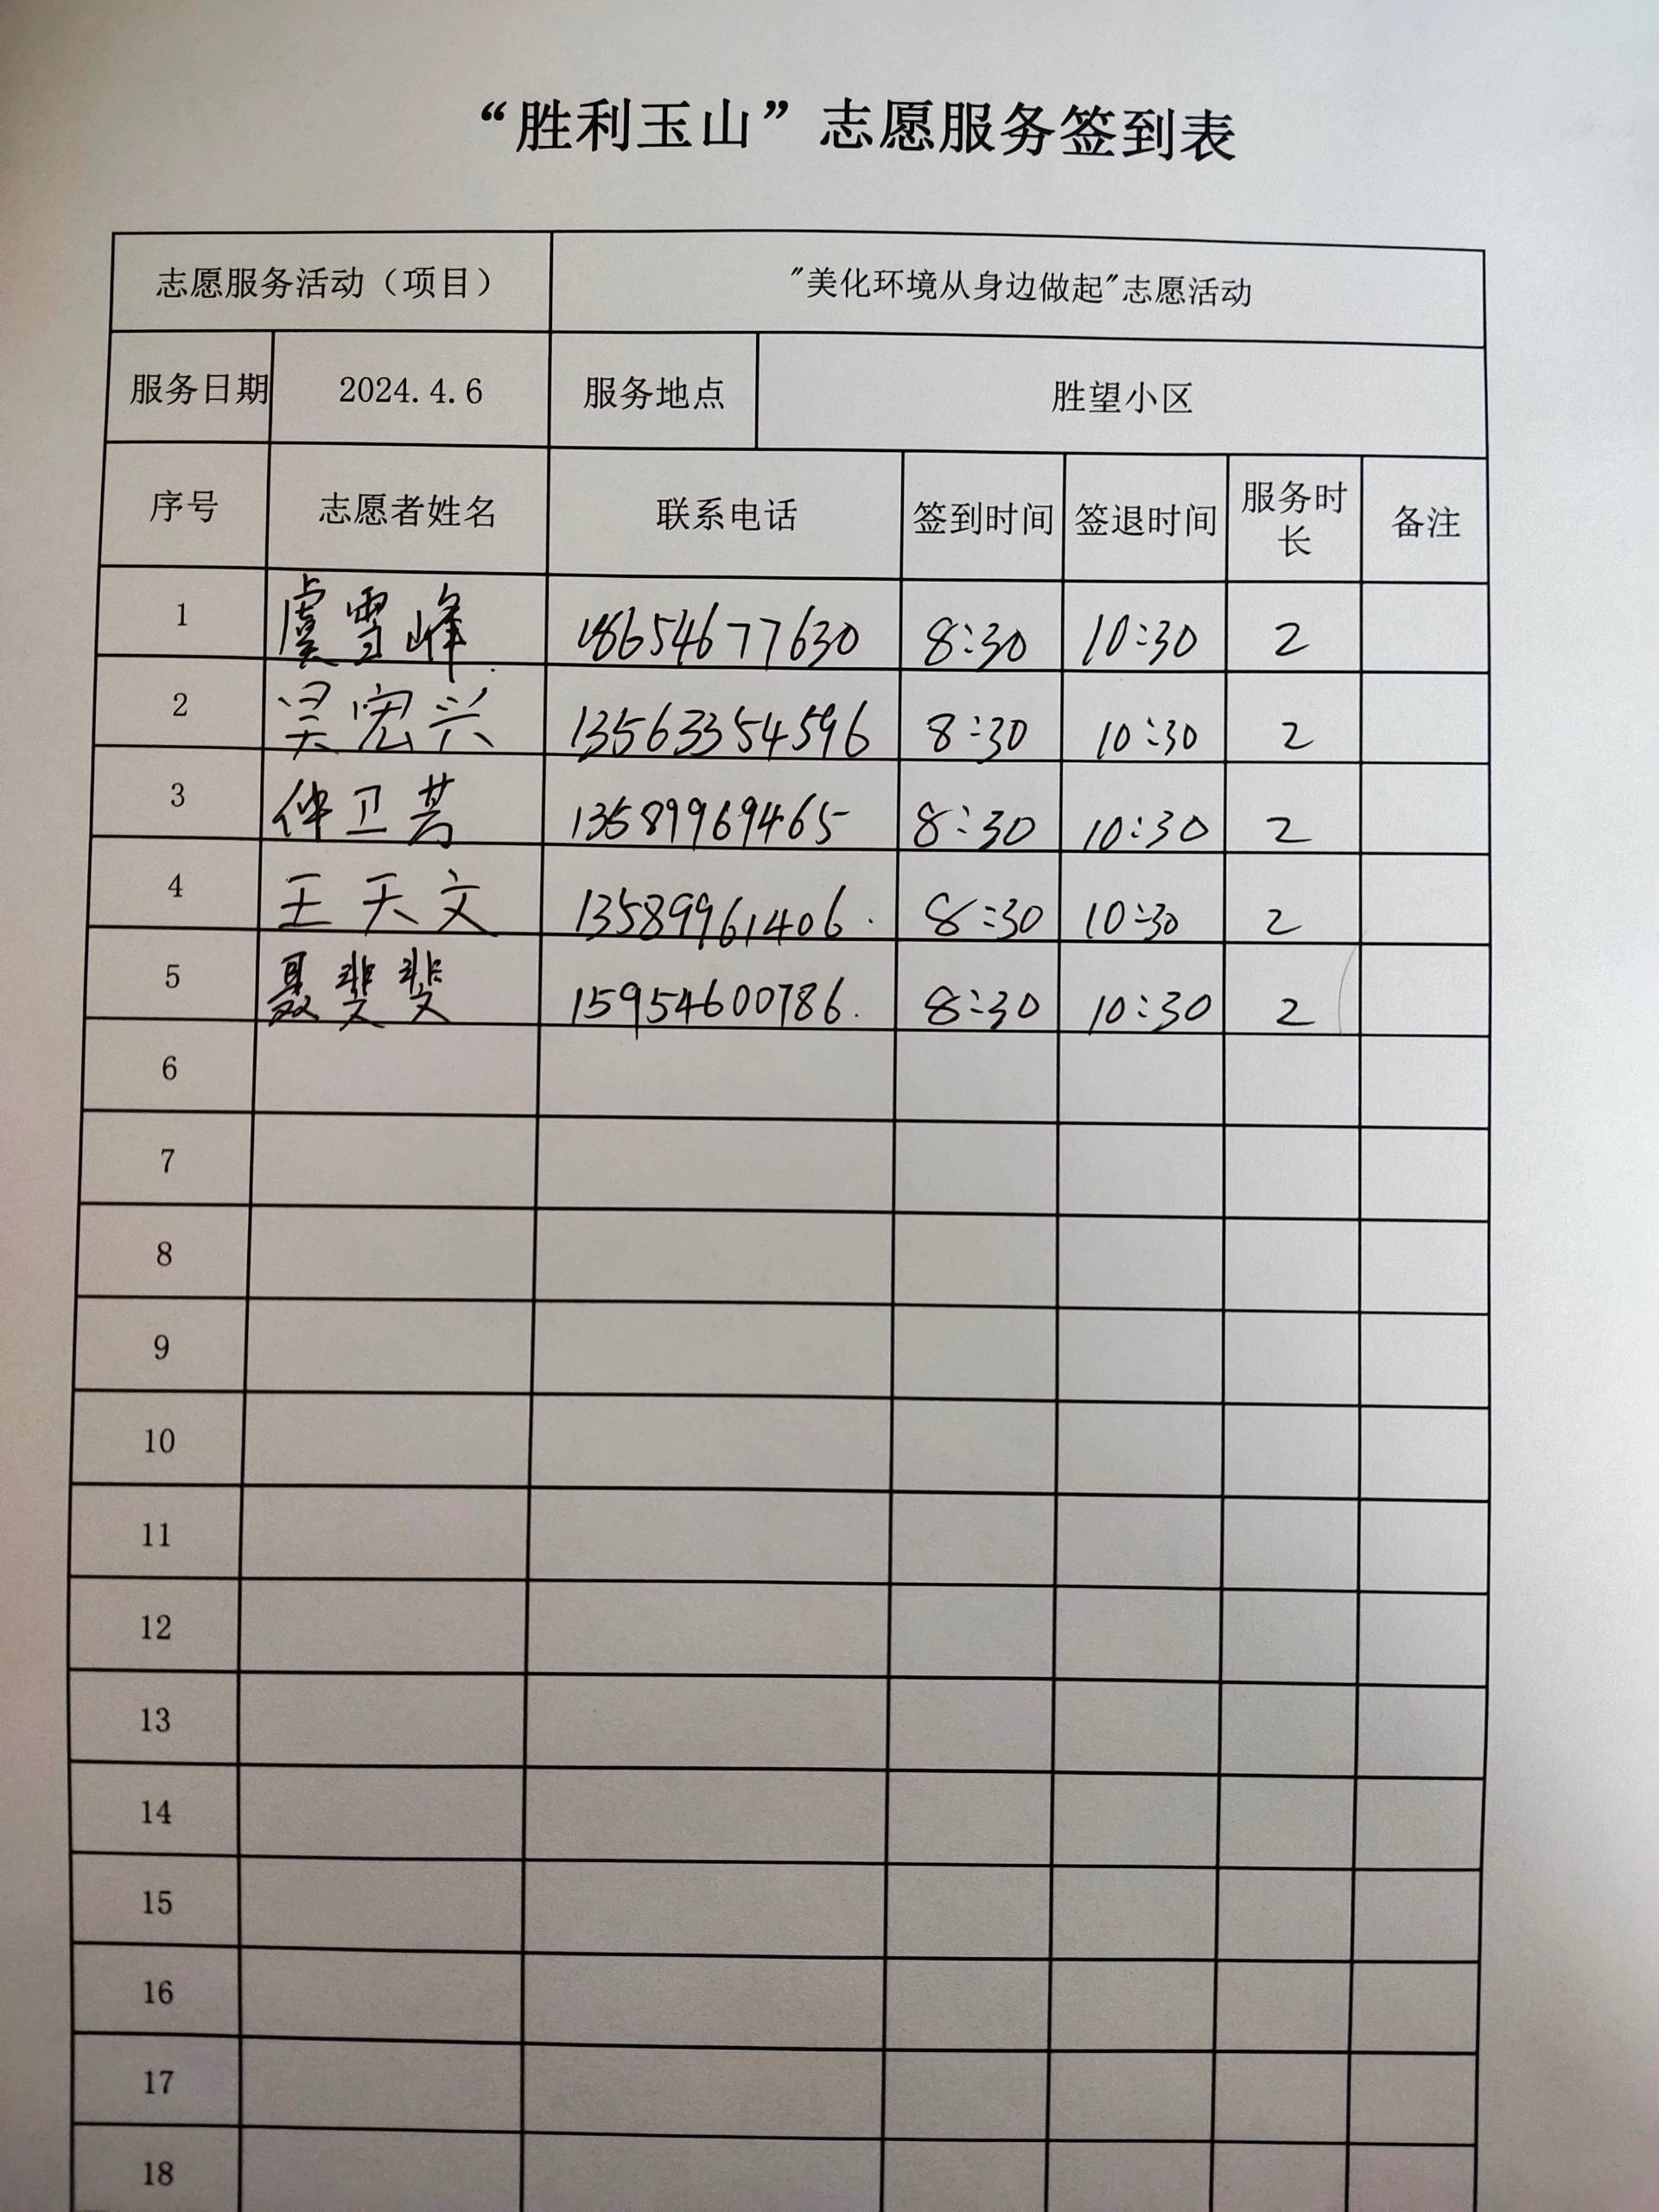 “胜利玉山”志愿服务签到表
志愿服务活动（项目） "美化环境从身边做起"志愿活动
服务日期 2024.4.6 服务地点 胜望小区
序号 志愿者姓名 联系电话 签到时间 签退时间 服务时长 备注
1 虞雪峰 18654677630 8:30 10:30 2
2 吴宏兴 13563354596 8:30 10:30 2
3 仲卫芳 13589969465 8:30 10:30 2
4 王天文 13589961406 8:30 10:30 2
5 聂斐斐 15954600786 8:30 10:30 2
6
7
8
9
10
11
12
13
14
15
16
17
18